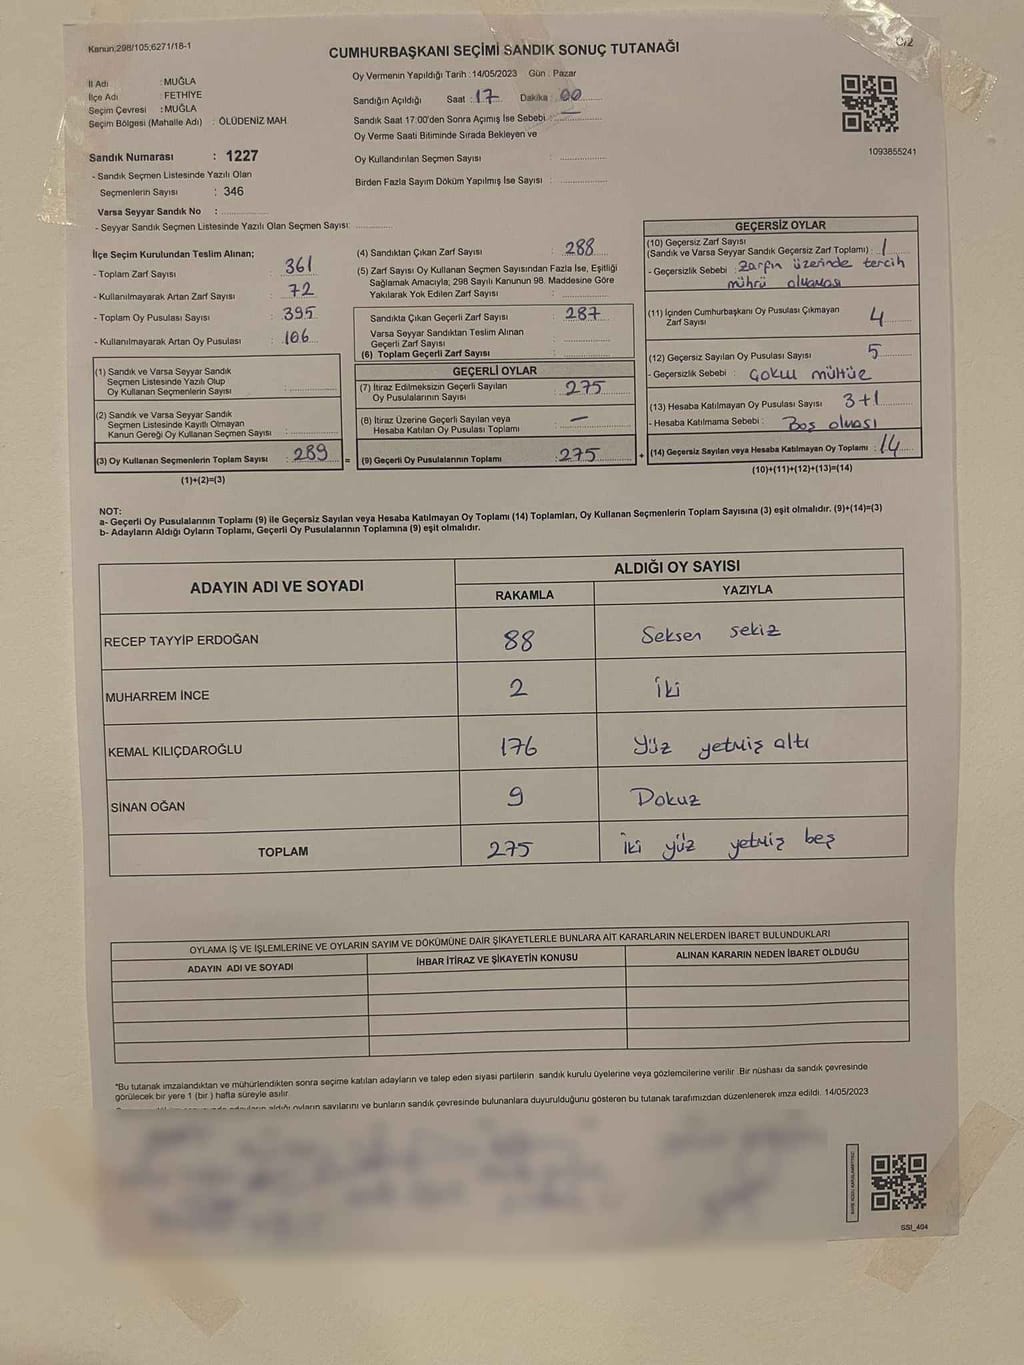 Kanun,298/105;6271/18-1
CUMHURBAŞKANI SEÇİMİ SANDIK SONUÇ TUTANAĞI
İl Adı : MUĞLA
İlçe Adı : FETHİYE
Seçim Çevresi : MUĞLA
Seçim Bölgesi (Mahalle Adı) : ÖLÜDENİZ MAH
Oy Vermenin Yapıldığı Tarih : 14/05/2023 Gün : Pazar
Sandığın Açıldığı Saat : 17 Dakika : 00
Sandık Saat 17:00'den Sonra Açımış İse Sebebi : —
Oy Verme Saati Bitiminde Sırada Bekleyen ve
Oy Kullandırılan Seçmen Sayısı :
Birden Fazla Sayım Döküm Yapılmış İse Sayısı :
1093855241
Sandık Numarası : 1227
- Sandık Seçmen Listesinde Yazılı Olan
Seçmenlerin Sayısı : 346
Varsa Seyyar Sandık No :
- Seyyar Sandık Seçmen Listesinde Yazılı Olan Seçmen Sayısı:
İlçe Seçim Kurulundan Teslim Alınan;
- Toplam Zarf Sayısı : 361
- Kullanılmayarak Artan Zarf Sayısı : 72
- Toplam Oy Pusulası Sayısı : 395
- Kullanılmayarak Artan Oy Pusulası : 106
(1) Sandık ve Varsa Seyyar Sandık
Seçmen Listesinde Yazılı Olup
Oy Kullanan Seçmenlerin Sayısı :
(2) Sandık ve Varsa Seyyar Sandık
Seçmen Listesinde Kayıtlı Olmayan
Kanun Gereği Oy Kullanan Seçmen Sayısı :
(3) Oy Kullanan Seçmenlerin Toplam Sayısı : 289 =
(1)+(2)=(3)
(4) Sandıktan Çıkan Zarf Sayısı : 288
(5) Zarf Sayısı Oy Kullanan Seçmen Sayısından Fazla İse, Eşitliği
Sağlamak Amacıyla; 298 Sayılı Kanunun 98. Maddesine Göre
Yakılarak Yok Edilen Zarf Sayısı :
Sandıkta Çıkan Geçerli Zarf Sayısı : 287
Varsa Seyyar Sandıktan Teslim Alınan
Geçerli Zarf Sayısı :
(6) Toplam Geçerli Zarf Sayısı :
GEÇERLİ OYLAR
(7) İtiraz Edilmeksizin Geçerli Sayılan
Oy Pusulalarının Sayısı : 275
(8) İtiraz Üzerine Geçerli Sayılan veya
Hesaba Katılan Oy Pusulası Toplamı : —
(9) Geçerli Oy Pusulalarının Toplamı : 275 +
GEÇERSİZ OYLAR
(10) Geçersiz Zarf Sayısı
(Sandık ve Varsa Seyyar Sandık Geçersiz Zarf Toplamı) : 1
- Geçersizlik Sebebi : Zarfın üzerinde tercih
mührü olmaması
(11) İçinden Cumhurbaşkanı Oy Pusulası Çıkmayan
Zarf Sayısı : 4
(12) Geçersiz Sayılan Oy Pusulası Sayısı : 5
- Geçersizlik Sebebi :
(13) Hesaba Katılmayan Oy Pusulası Sayısı : 3+1
- Hesaba Katılmama Sebebi : Boş olması
(14) Geçersiz Sayılan veya Hesaba Katılmayan Oy Toplamı : 14
(10)+(11)+(12)+(13)=(14)
NOT:
a- Geçerli Oy Pusulalarının Toplamı (9) ile Geçersiz Sayılan veya Hesaba Katılmayan Oy Toplamı (14) Toplamları, Oy Kullanan Seçmenlerin Toplam Sayısına (3) eşit olmalıdır. (9)+(14)=(3)
b- Adayların Aldığı Oyların Toplamı, Geçerli Oy Pusulalarının Toplamına (9) eşit olmalıdır.
ADAYIN ADI VE SOYADI
ALDIĞI OY SAYISI
RAKAMLA YAZIYLA
RECEP TAYYİP ERDOĞAN 88 Seksen sekiz
MUHARREM İNCE 2 İki
KEMAL KILIÇDAROĞLU 176 Yüz yetmiş altı
SİNAN OĞAN 9 Dokuz
TOPLAM 275 İki yüz yetmiş beş
OYLAMA İŞ VE İŞLEMLERİNE VE OYLARIN SAYIM VE DÖKÜMÜNE DAİR ŞİKAYETLERLE BUNLARA AİT KARARLARIN NELERDEN İBARET BULUNDUKLARI
ADAYIN ADI VE SOYADI İHBAR İTİRAZ VE ŞİKAYETİN KONUSU ALINAN KARARIN NEDEN İBARET OLDUĞU
*Bu tutanak imzalandıktan ve mühürlendikten sonra seçime katılan adayların ve talep eden siyasi partilerin sandık kurulu üyelerine veya gözlemcilerine verilir. Bir nüshası da sandık çevresinde
görülecek bir yere 1 (bir) hafta süreyle asılır.
aldığı oyların sayılarını ve bunların sandık çevresinde bulunanlara duyurulduğunu gösteren bu tutanak tarafımızdan düzenlenerek imza edildi. 14/05/2023
SSI_494